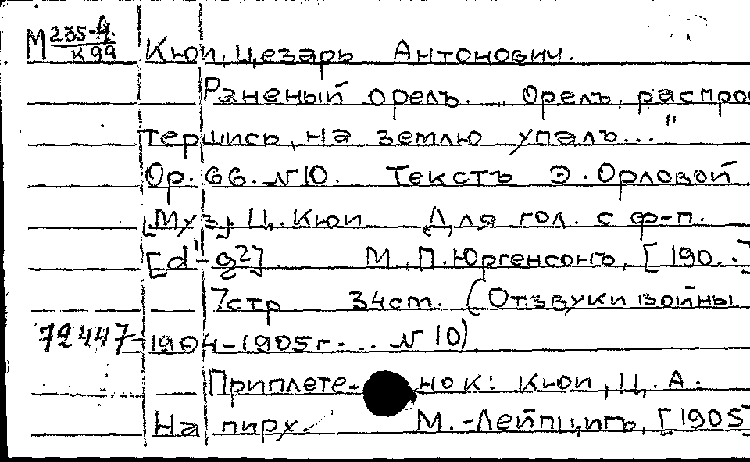 М 235-4 Кюи, Цезарь Антонович.
К 99
Раненый орелъ. „Орелъ, распро
тершись, на землю упалъ..."
Ор. 66. №10. Текстъ Э. Орловой
[Муз.] Ц. Кюи Для гол. с ф-п.
[d¹-g²] М., П. Юргенсонъ, [190..]
7стр 34см. (Отзвуки войны
72447 1904-1905г... №10)
Приплете- нок: Кюи, Ц. А.
На пиру М.-Лейпцигъ, [1905